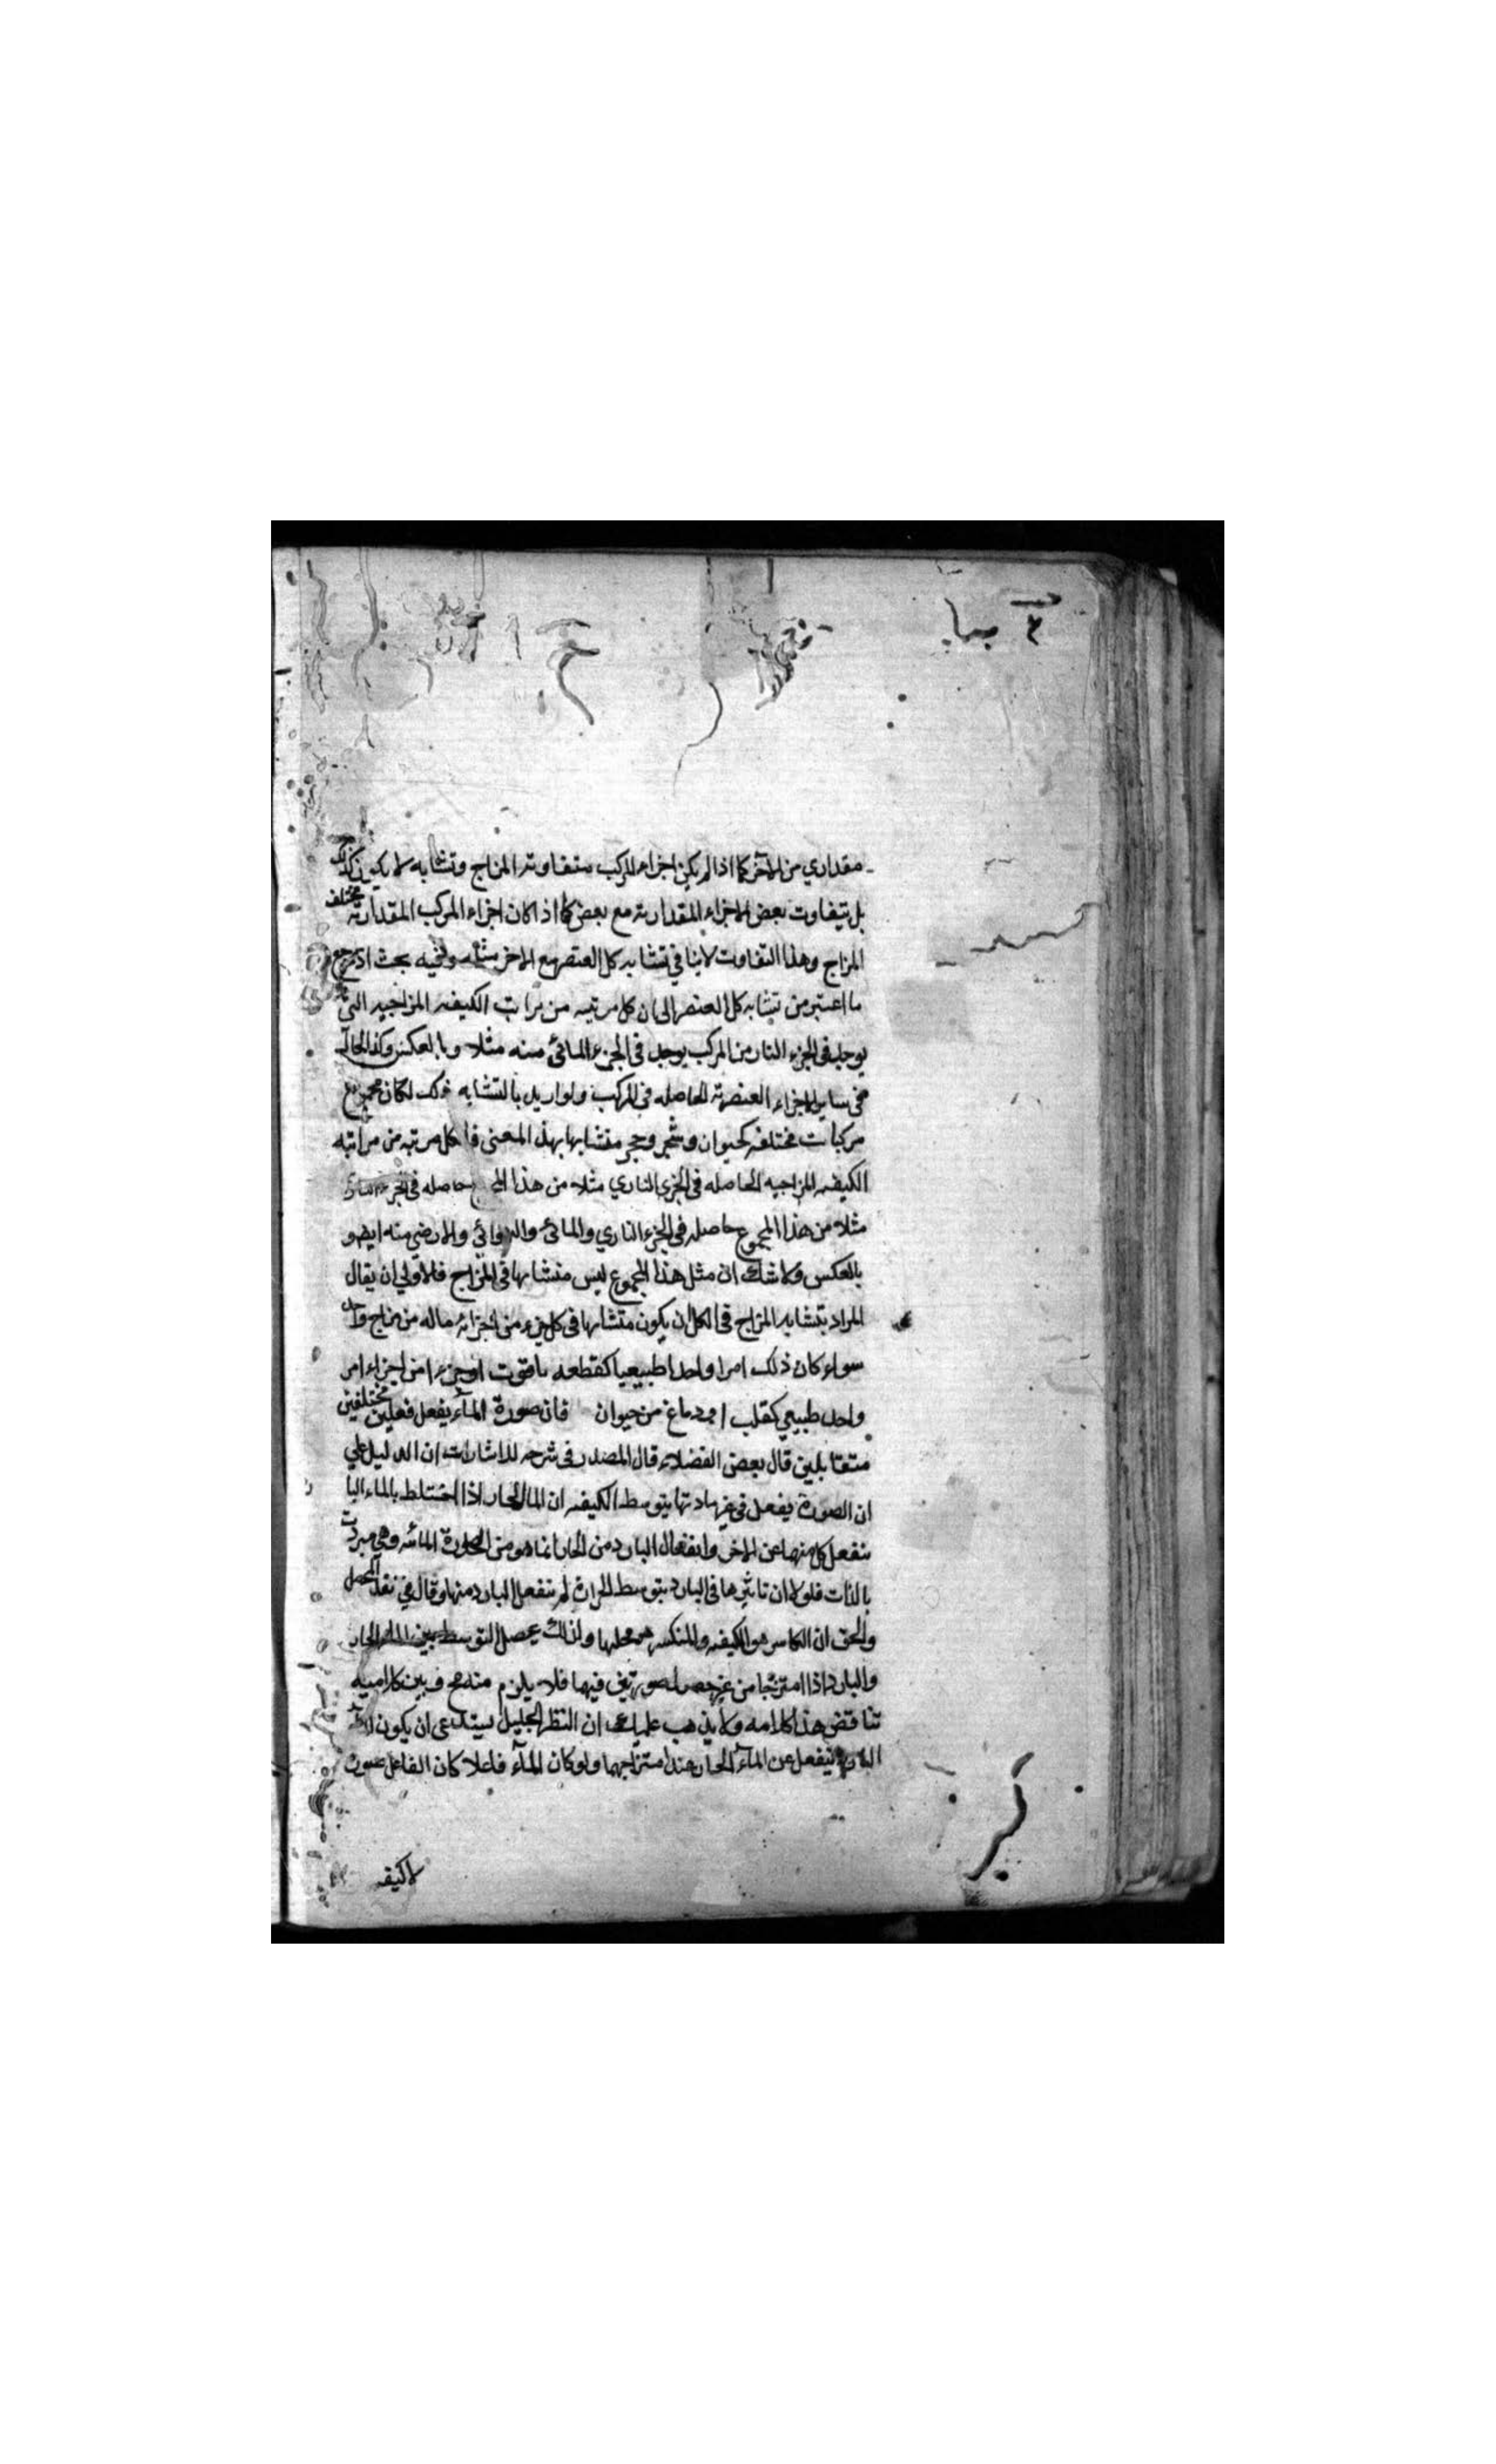 مقداري من الآخر كما اذا لم يكن اجزاء المركب متفاوتة المزاج وتشابه لا يكون كذلك
بل يتفاوت بعض الاجزاء المقدارية مع بعض كما اذا كان اجزاء المركب المقدارية مختلفة
المزاج وهذا التفاوت لا ينافي تشابه كل العنصر مع الاخر وفيه بحث اذ يرجع
ما اعتبر من تشابه كل العنصر الى ان كل مرتبه من مراتب الكيفيه المزاجيه التي
يوجد في الجزء النار من المركب يوجد في الجزء المائى منه مثلا وبالعكس وكذا الحال
في ساير الاجزاء العنصرية الحاصله في المركب ولو اريد بالتشابه ذلك لكان مجموع
مركبات مختلفه كحيوان وشجر وحجر متشابها بهذا المعنى فا كل مرتبه من مراتبه
الكيفيه المزاجيه الحاصله في الجزء الناري مثلا من هذا حاصله في الجزء
مثلا من هذا المجموع حاصله في الجزء الناري والمائى والهوائى والارضي منه ايضو
بالعكس ولا شك ان مثل هذا المجموع ليس متشابها في المزاج فالاولى ان يقال
المراد بتشابه المزاج في الكل ان يكون متشابها في كل جزء من اجزائه ماله من مزاج واحد
سواء كان ذلك امرا واحدا طبيعيا كقطعه ياقوت اوجزءا من اجزاء امر
واحد طبيعي كقلب او دماغ من حيوان فان صورة المآء يفعل فعلين مختلفين
متقابلين قال بعض الفضلاء قال المصدر في شرحه للاشارات ان الدليل على
ان الصورة يفعل في غير مادتها بتوسط الكيفيه ان المآ الحار اذا اختلط بالماء البا
ينفعل كل منهما عن الاخر وانفعال البارد من الحار انما هو من الصورة المائيه وهي مبردت
بالذات فلولا ان تاثيرها في البارد بتوسط الحرارة لم ينفعل البارد منها وقال في نقد المحصل
والحق ان الكاسر هو الكيفيه والمنكسر هو محلها ولذلك يحصل التوسط بين الماء الحار
والبارد اذا امتزجا من غير حصول صورتين فيهما فلا يلزم منه مح فبين كلاميه
تناقض هذا كلامه ولا يذهب عليك ان النظر الجليل يستدعى ان يكون
البارد ينفعل عن المآء الحار عند امتزاجهما ولو كان المآء فاعلا كان الفاعل صورته
لاكيفيه